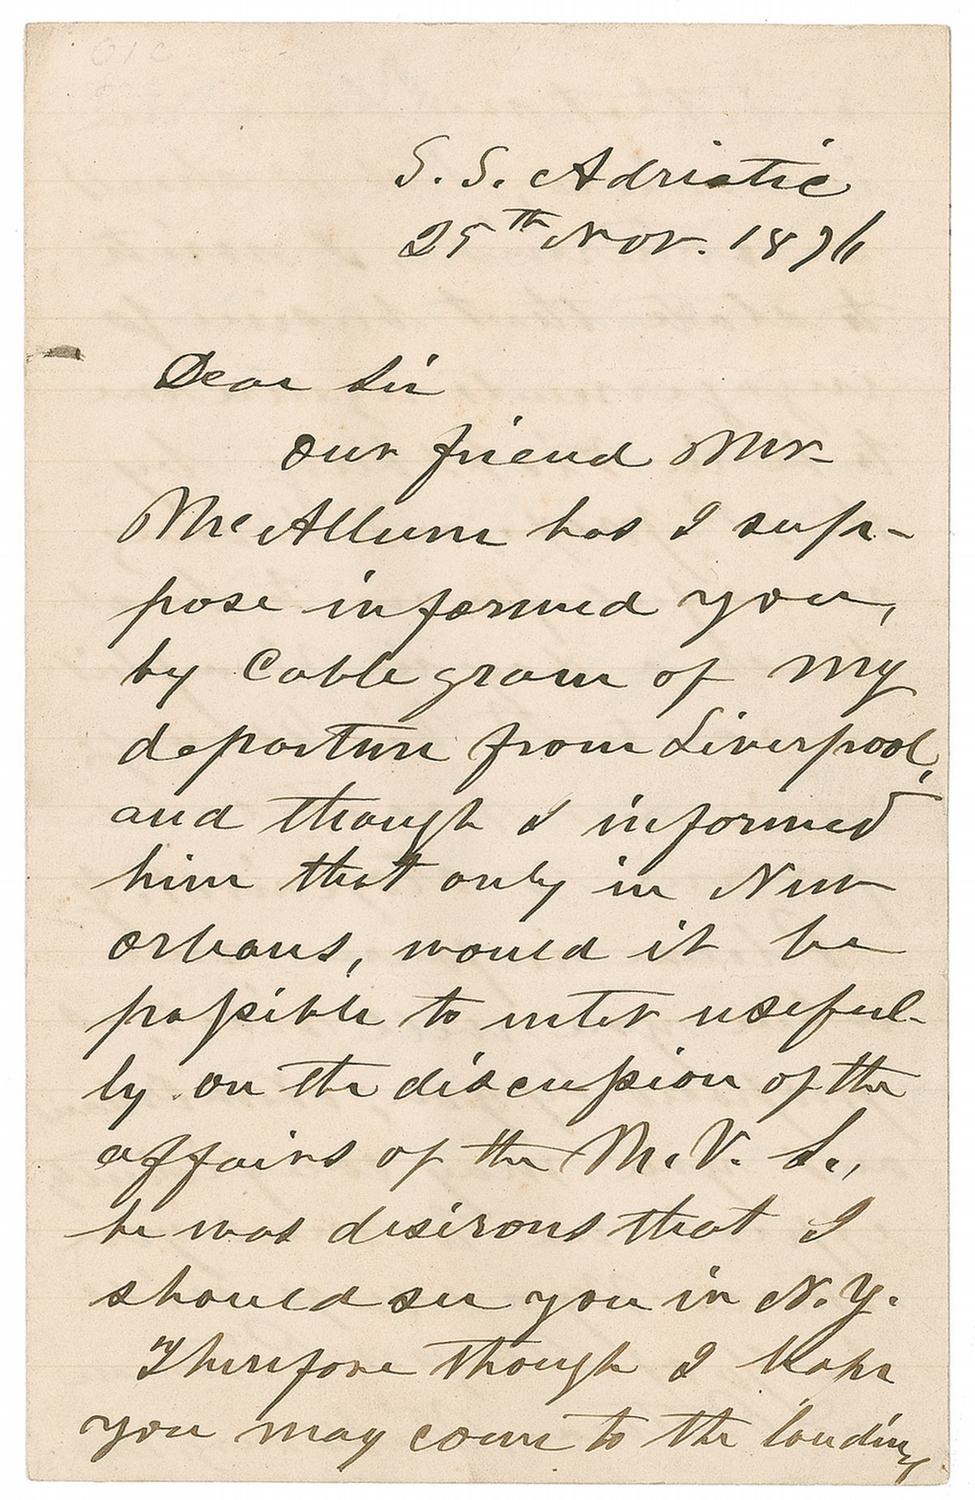 S. S. Adriatic
25th Nov. 1876
Dear Sir
Our friend Mr
McAllum has I sup-
pose informed you,
by Cablegram of my
departure from Liverpool,
and though I informed
him that only in New
Orleans, would it be
possible to enter useful-
ly on the discussion of the
affairs of the M. V. S.,
he was desirous that I
should see you in N. Y.
Therefore though I hope
you may come to the landing